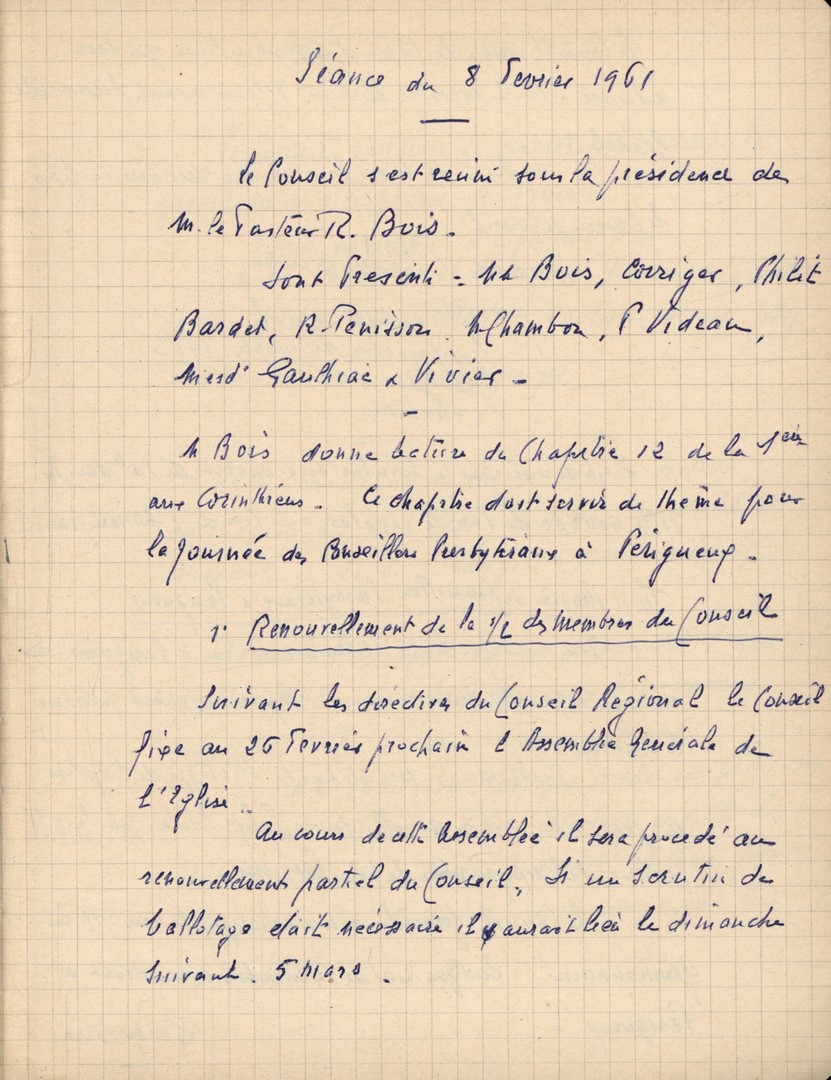 Séance du 8 Fevrier 1961
le Conseil s'est reuni sous la présidence de
M. le Pasteur R. Bois.
Sont Presents = MM Bois, Corriger, Philit
Bardet, R. Penisson M Chambon, P Videau,
Mesd Gauthiac & Vivier -
M Bois donne lecture du Chapitre 12 de la 1ère
aux Corinthiens. Ce chapitre doit servir de thème pour
la Journée des Conseillers Presbyteraux à Périgueux.
1° Renouvellement de la 1/2 des membres du Conseil
Suivant les directives du Conseil Régional le Conseil
fixe au 26 Fevrier prochain l'Assemblée Generale de
L'Eglise
Au cours de cette Assemblée il sera procedé au
renouvellement partiel du Conseil. Si un scrutin de
ballotage etait nécessaire il aurait lieu le dimanche
suivant. 5 mars.